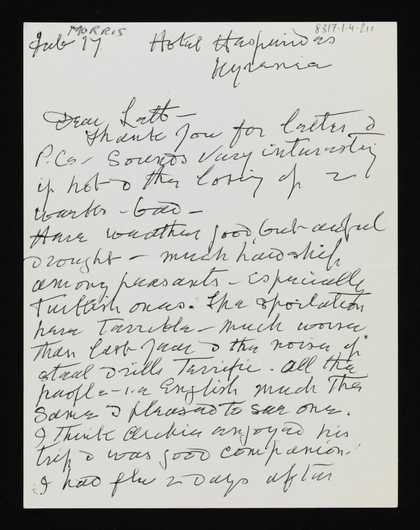 MORRIS
8317.1.4.211
Feb 17 Hotel Hesperides
Kyrenia
Dear Lett -
Thank you for letter &
P.Cs - Sounds very interesting
if hot & the losing of 2
works - bad -
Have weather good but awful
drought - much hardship
among peasants - especially
Turkish ones. The spoilation
here terrible - much worse
than last year & the noise of
steel drills terrific. All the
people - i.e English much the
same & pleased to see one.
I think Archie enjoyed his
trip & was good companion.
I had flu 2 days after